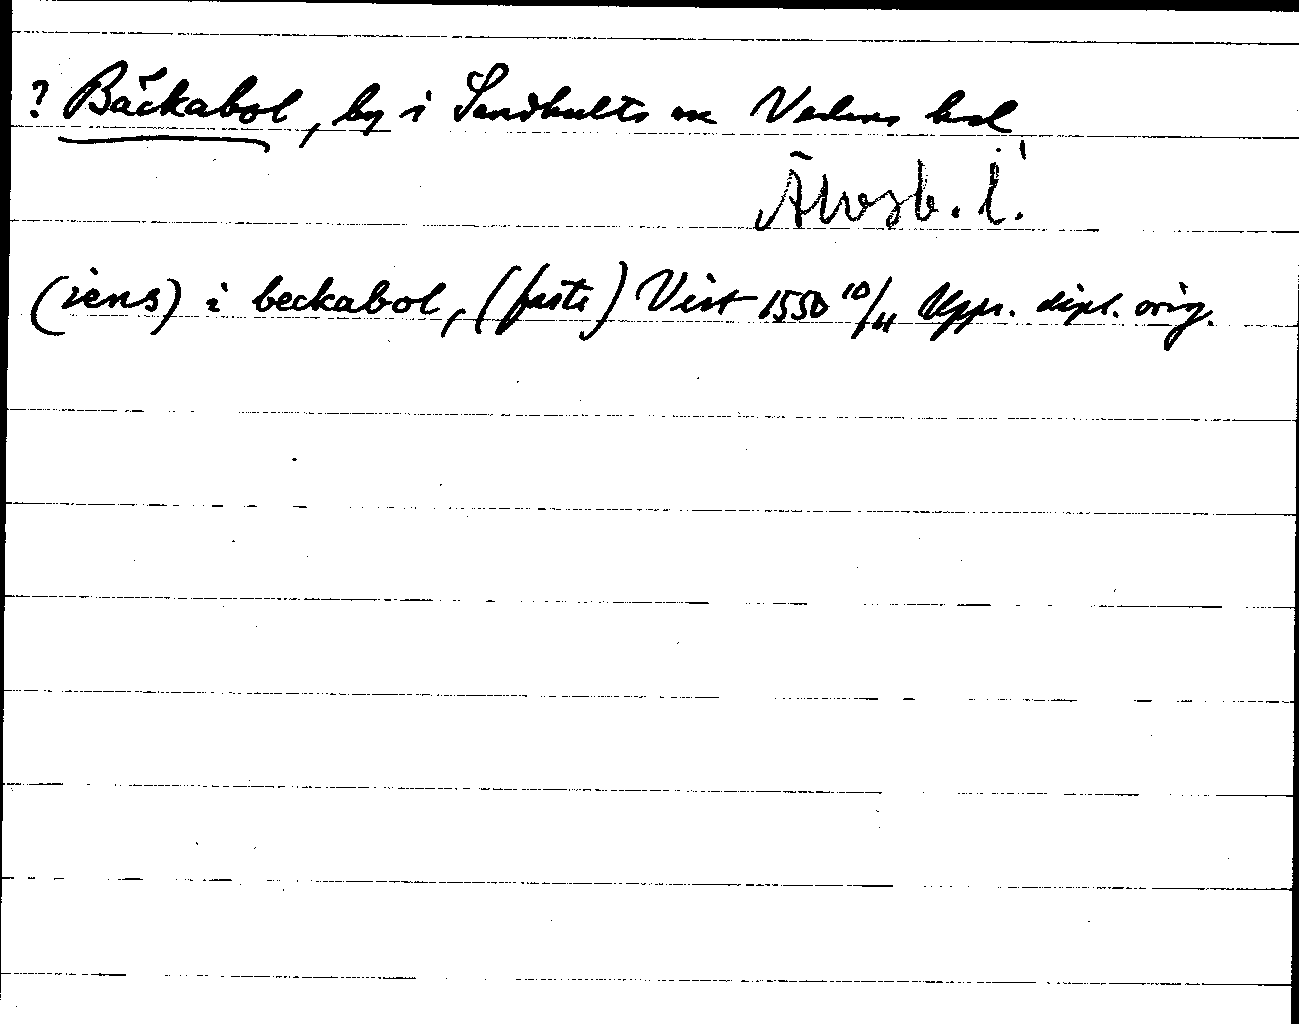 ? Bäckabol, by i Sandhults sn Vedens hd
Älvsb. l.
(iens) i beckabol, (faste) Vist 1550 10/11 Upps. dipl. orig.